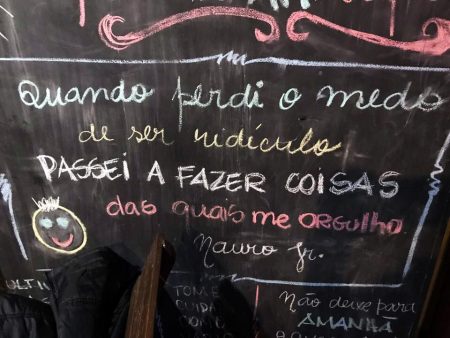 Quando perdi o medo
de ser ridículo
PASSEI A FAZER COISAS
das quais me ORGULHO
Nauro Jr.
TOME
Não deixe para
AMANHÃ